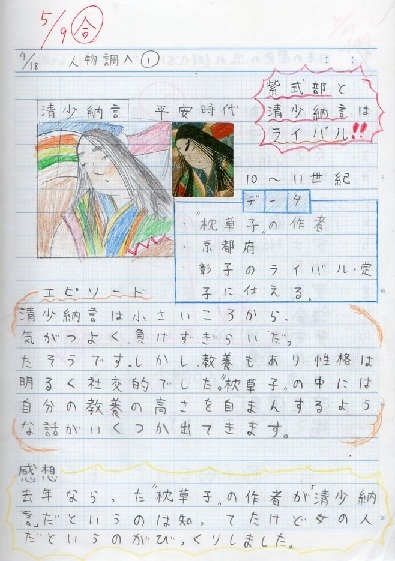 5/9 合
4/18 人物調べ①
紫式部と
清少納言は
ライバル!!
清少納言 平安時代
10〜11世紀
データ
・『枕草子』の作者
・京都府
・彰子のライバル・定
子に仕える。
エピソード
清少納言は小さいころから、
気がつよく、負けずぎらいだっ
たそうです。しかし、教養もあり性格は
明るく社交的でした。『枕草子』の中には
自分の教養の高さを自まんするよう
な話がいくつか出てきます。
感想
去年ならった『枕草子』の作者が「清少納
言」だというのは知ってたけど女の人
だというのがびっくりしました。